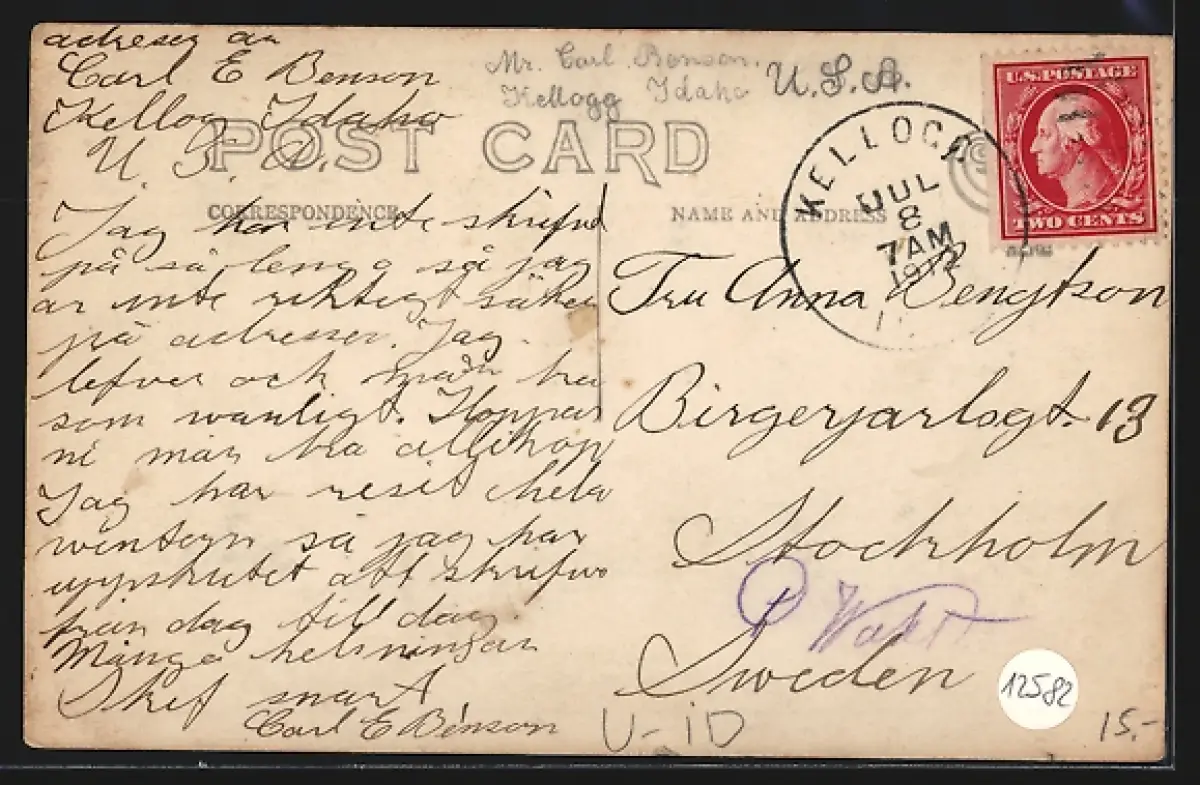 adresen är
Carl E Benson
Kellog Idaho
U. S. A.
Mr. Carl Benson.
Kellogg Idaho U.S.A.
POST CARD
CORRESPONDENCE
NAME AND ADDRESS
KELLOGG
JUL
8
7 AM
1912
U.S. POSTAGE
TWO CENTS
Jag har inte skrifvit
på så leng så jag
är inte riktigt säker
på adressen. Jag
lefver och mår bra
som wanligt. Hoppas
ni mår bra allihop
Jag har resit hela
wintern så jag har
uppskutet att skrifva
från dag till dag.
Många helsningar
Skrif snart
Carl E Benson
Fru Anna Bengtson
Birgerjarlsgt. 13
Stockholm
Sweden
12582
U-ID
15.-